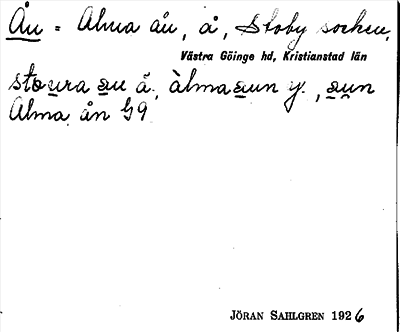 Ån = Alma ån, å, Stoby socken,
Västra Göinge hd, Kristianstad län
stoura au å. àlmaaun y., aun
Alma ån G9
JÖRAN SAHLGREN 1926